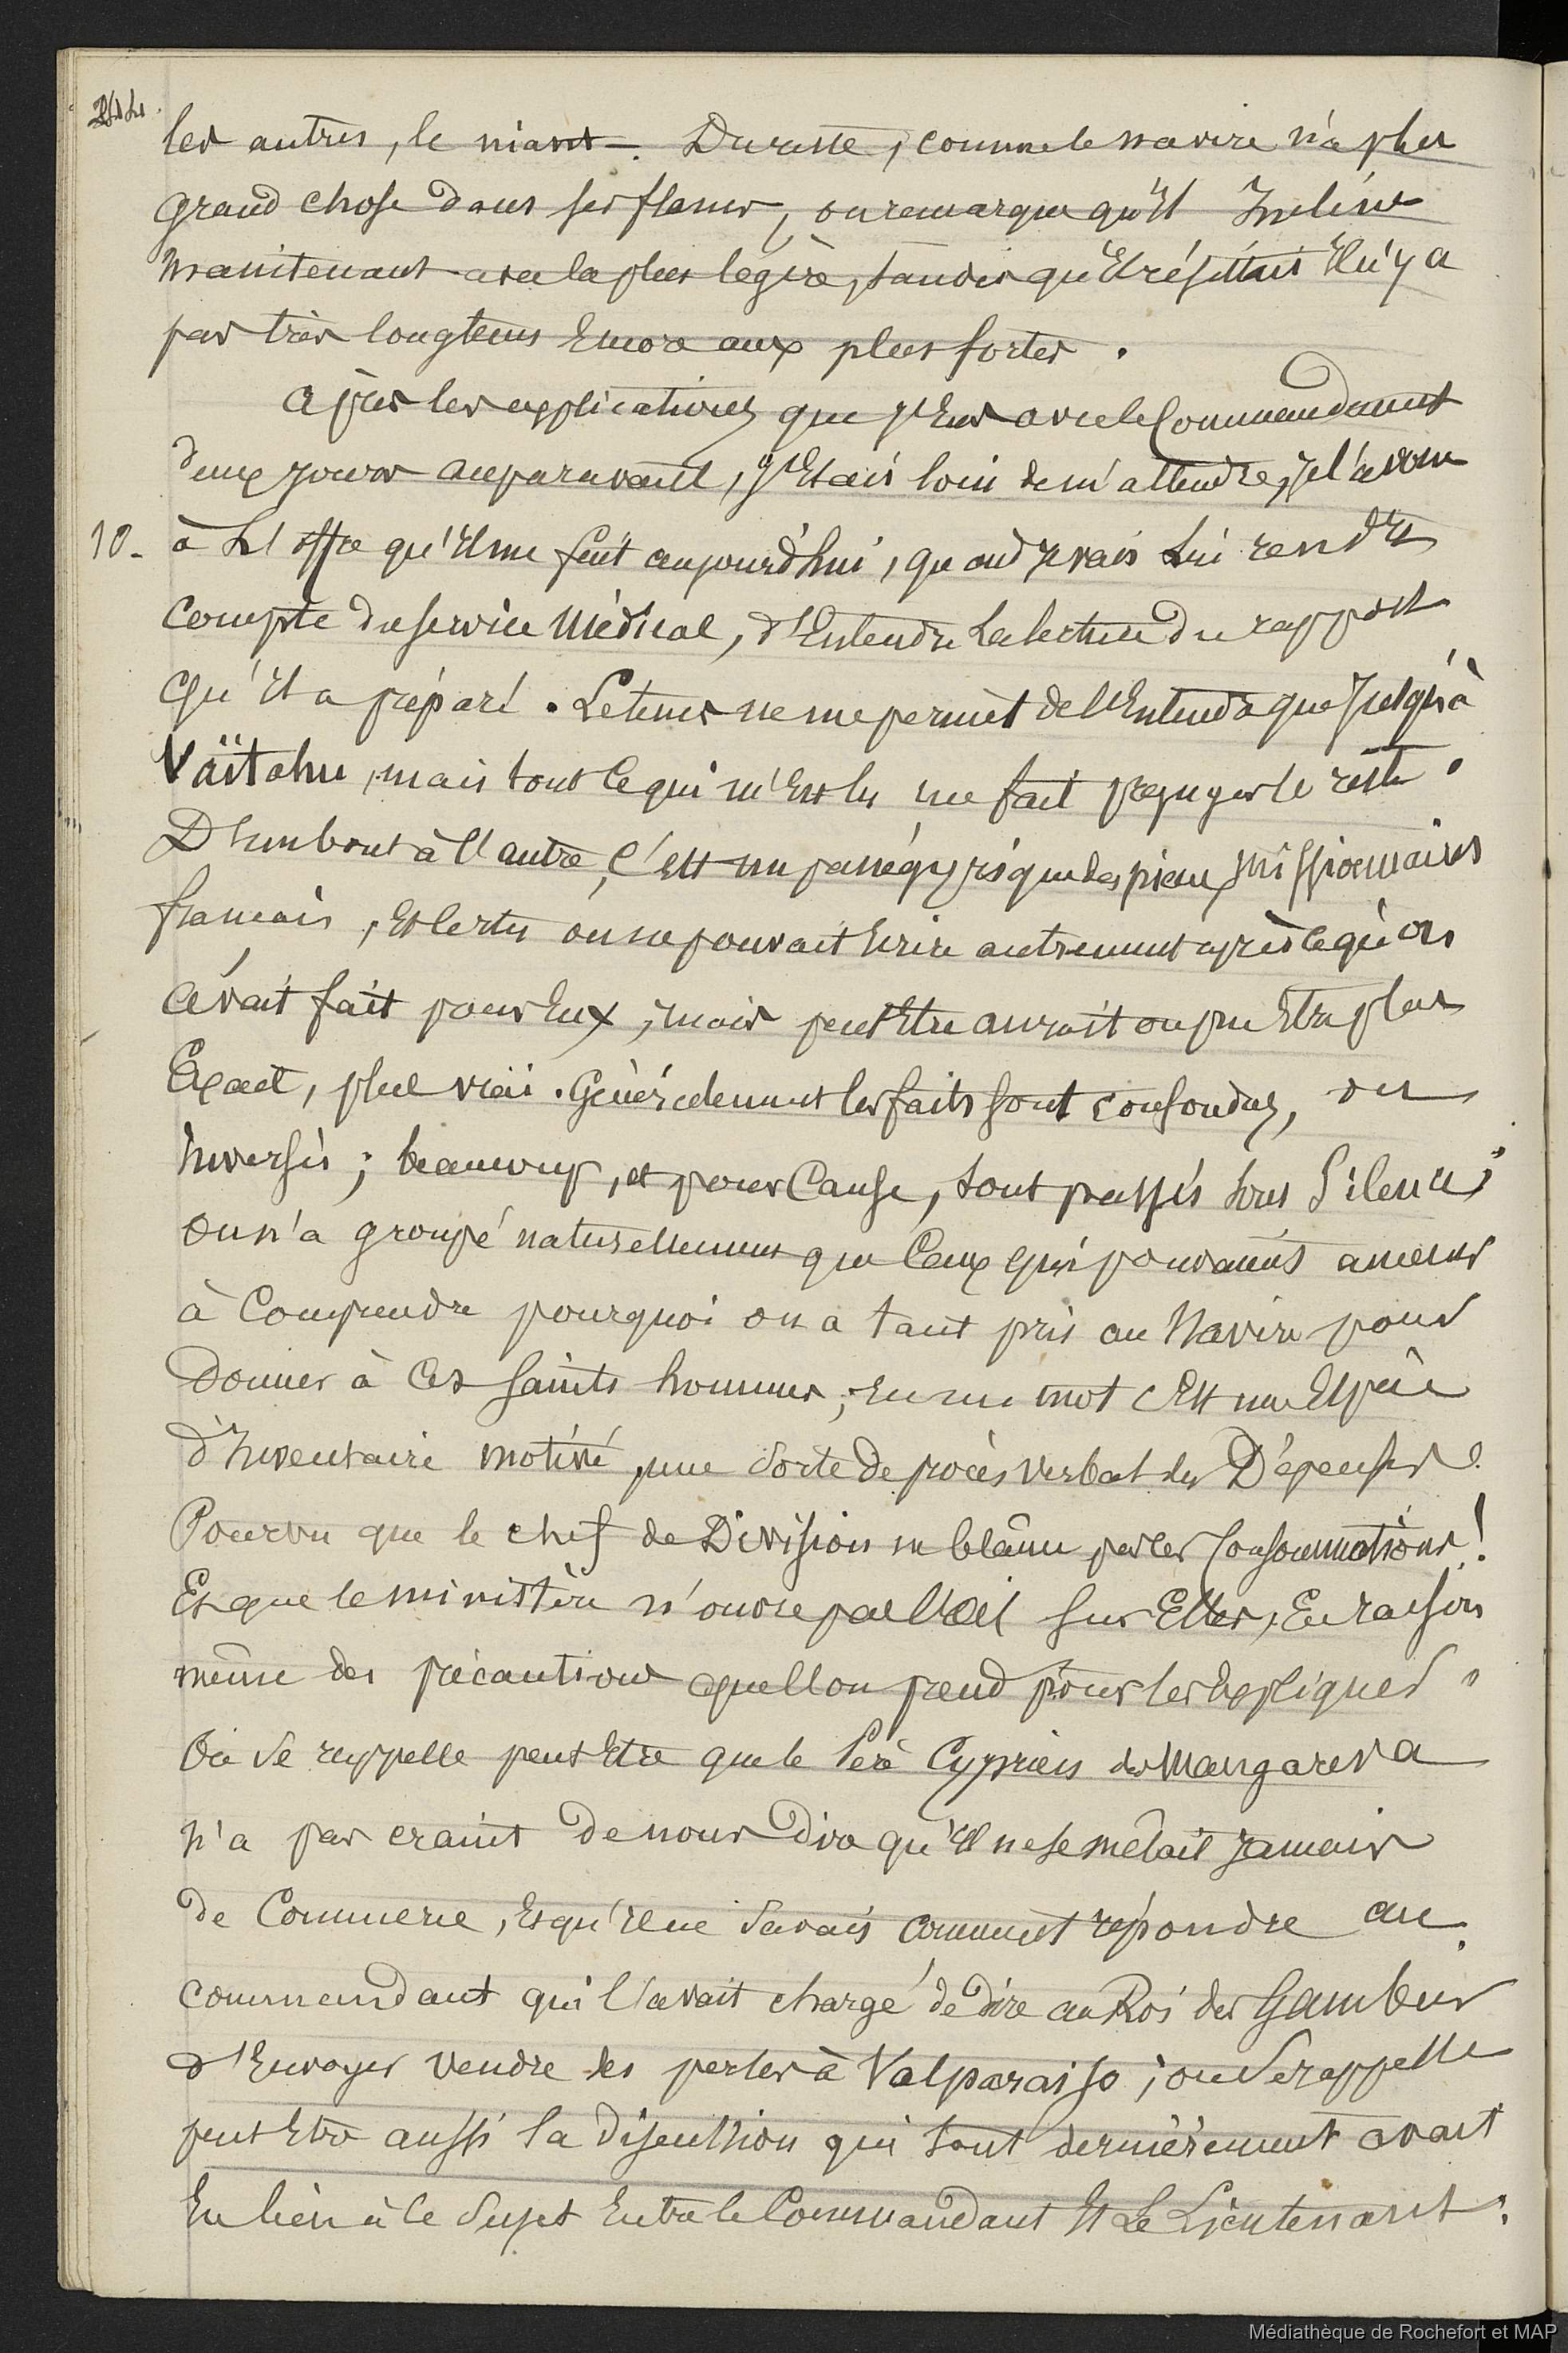 les autres, le niant. Dureste, comme le navire n'a plus
grand chose dans ses flancs, on remarque qu'il Incline
maintenant avec la plus légère, tandis qu'il résistait Il n'y a
pas très longtems Encore aux plus fortes.
Après les explications que j'Eus avec le Commandant
deux jours auparavant, j'Etais loin de m'attendre, je l'avoue
10. à l'offre qu'Il me fait aujourd'hui, quand je vais Lui rendre
Compte du service Médical, d'Entendre La lecture du rapport
qu'il a préparé. Le tems ne me permet de l'Entendre que Jusqu'à
Vaïtahu, mais tout Ce qui m'Est lu me fait préjuger le reste.
D'un bout à l'autre, C'est un panégyrique des pieux missionnaires
français, Et certes on ne pouvait Ecrire autrement après ce qu'on
avait fait pour Eux; mais peut Etre aurait on pu Etre plus
Exact, plus vrai. Généralement les faits sont confondus, ou
Inversés; beaucoup, et pour Cause, sont passés sous Silence;
on n'a groupé naturellement que Ceux qui pouvaient amener
à Comprendre pourquoi on a tant pris au Navire pour
Donner à Ces saints hommes; En un mot C'Est une Espèce
d'Inventaire motivé, une sorte de procès verbal des Dépenses.
Pourvu que le chef de Division ne blâme pas les Consommations!
Et que le ministère n'ouvre pas l'Oeil sur Elles, En raison
même des précautions que l'on prend pour les Expliquer.
On se rappelle peut Etre que le Père Cyprien de Mangareva
n'a pas craint de nous Dire qu'Il ne se mêlait jamais
de Commerce, Et qu'Il ne Savais comment répondre au
commandant qui l'avait chargé de Dire au Roi des Gambier
d'Envoyer vendre les perles à Valparaiso; on se rappelle
peut Etre aussi la Discussion qui tout dernièrement avait
Eu lieu à Ce Sujet Entre le Commandant Et Le Lieutenant.
Médiathèque de Rochefort et MAP